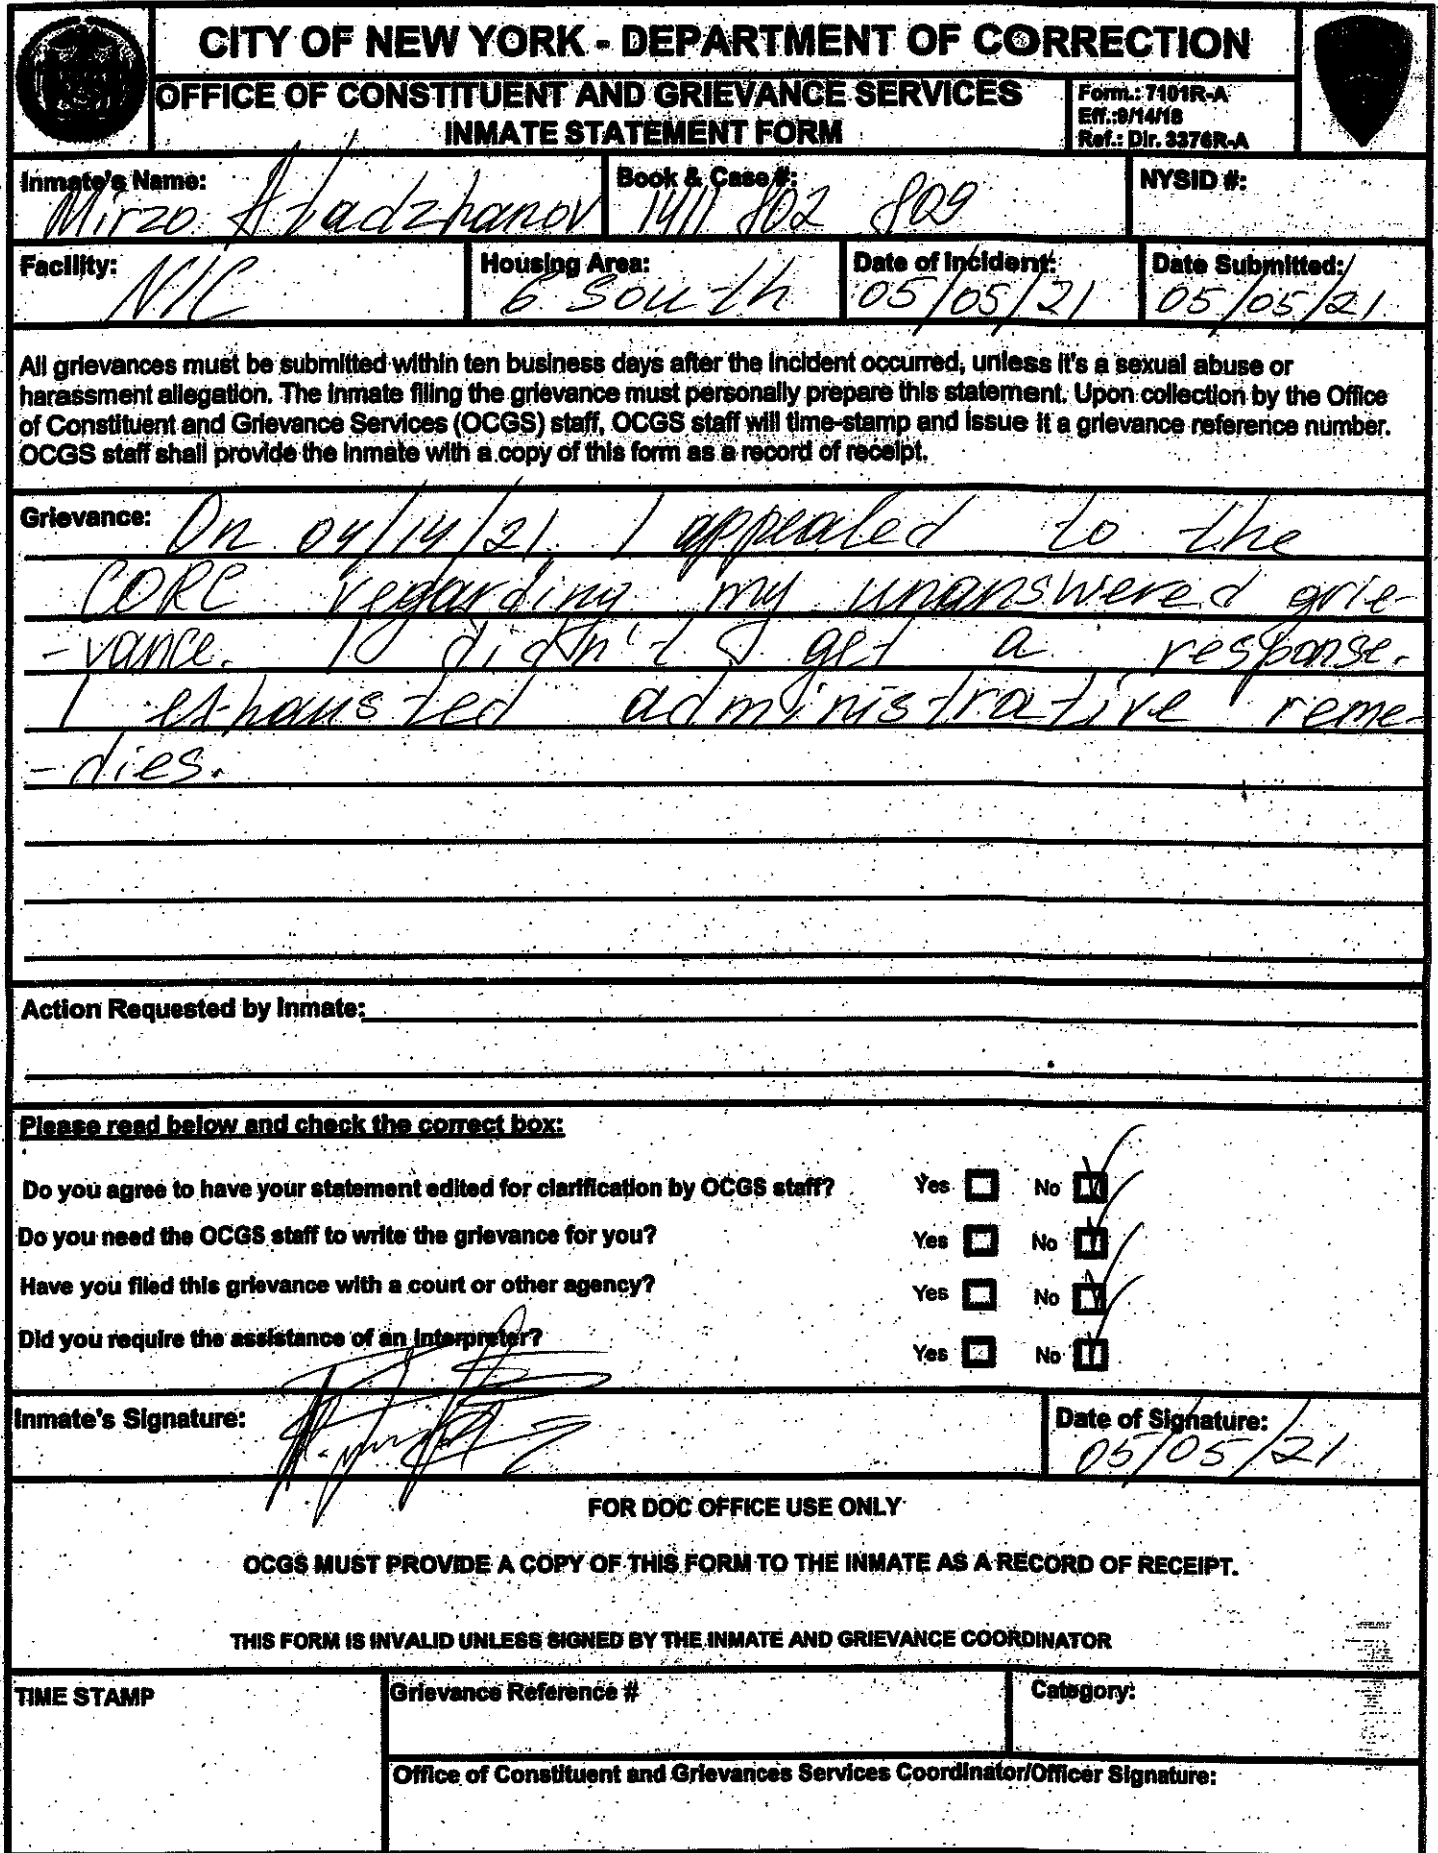 CITY OF NEW YORK - DEPARTMENT OF CORRECTION
OFFICE OF CONSTITUENT AND GRIEVANCE SERVICES
INMATE STATEMENT FORM
Form.: 7101R-A
Eff.:9/14/18
Ref.: Dir. 3376R-A
Inmate's Name:
Mirzo Atadzhanov
Book & Case #:
1411 802 809
NYSID #:
Facility:
NIC
Housing Area:
6 South
Date of Incident:
05/05/21
Date Submitted:
05/05/21
All grievances must be submitted within ten business days after the incident occurred, unless it's a sexual abuse or
harassment allegation. The inmate filing the grievance must personally prepare this statement. Upon collection by the Office
of Constituent and Grievance Services (OCGS) staff, OCGS staff will time-stamp and issue it a grievance reference number.
OCGS staff shall provide the inmate with a copy of this form as a record of receipt.
Grievance: On 04/14/21 I appealed to the
CORC regarding my unanswered grie-
-vance. I didn't get a response.
I exhausted administrative reme-
-dies.
Action Requested by Inmate:
Please read below and check the correct box:
Do you agree to have your statement edited for clarification by OCGS staff? Yes No
Do you need the OCGS staff to write the grievance for you? Yes No
Have you filed this grievance with a court or other agency? Yes No
Did you require the assistance of an interpreter? Yes No
Inmate's Signature:
Date of Signature:
05/05/21
FOR DOC OFFICE USE ONLY
OCGS MUST PROVIDE A COPY OF THIS FORM TO THE INMATE AS A RECORD OF RECEIPT.
THIS FORM IS INVALID UNLESS SIGNED BY THE INMATE AND GRIEVANCE COORDINATOR
TIME STAMP
Grievance Reference #
Category:
Office of Constituent and Grievances Services Coordinator/Officer Signature: